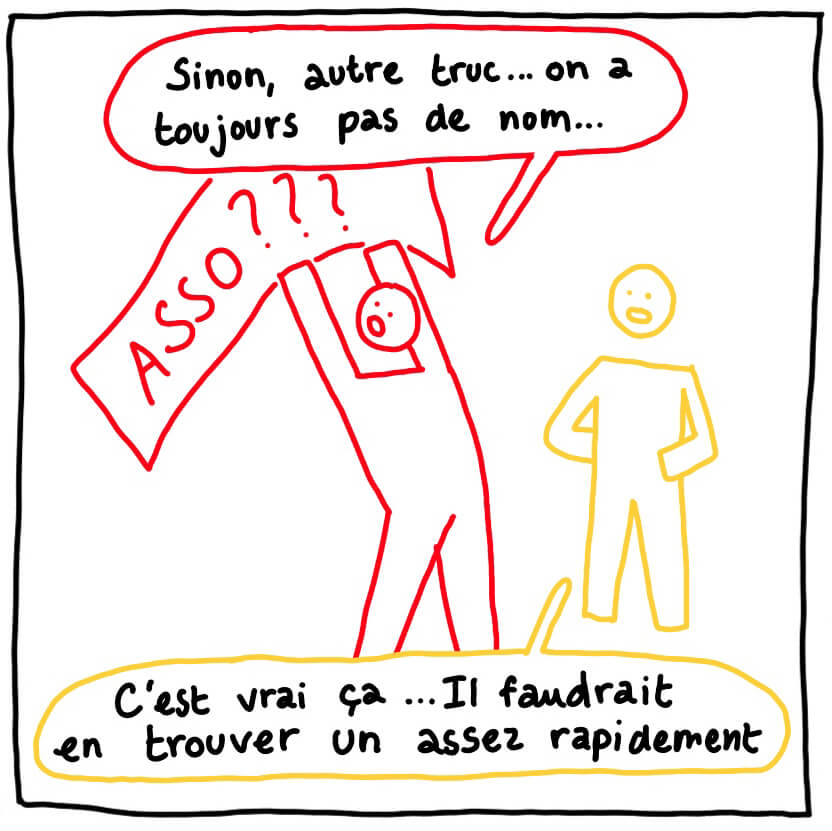 Sinon, autre truc... on a
toujours pas de nom...
ASSO ???
C'est vrai ça ...Il faudrait
en trouver un assez rapidement